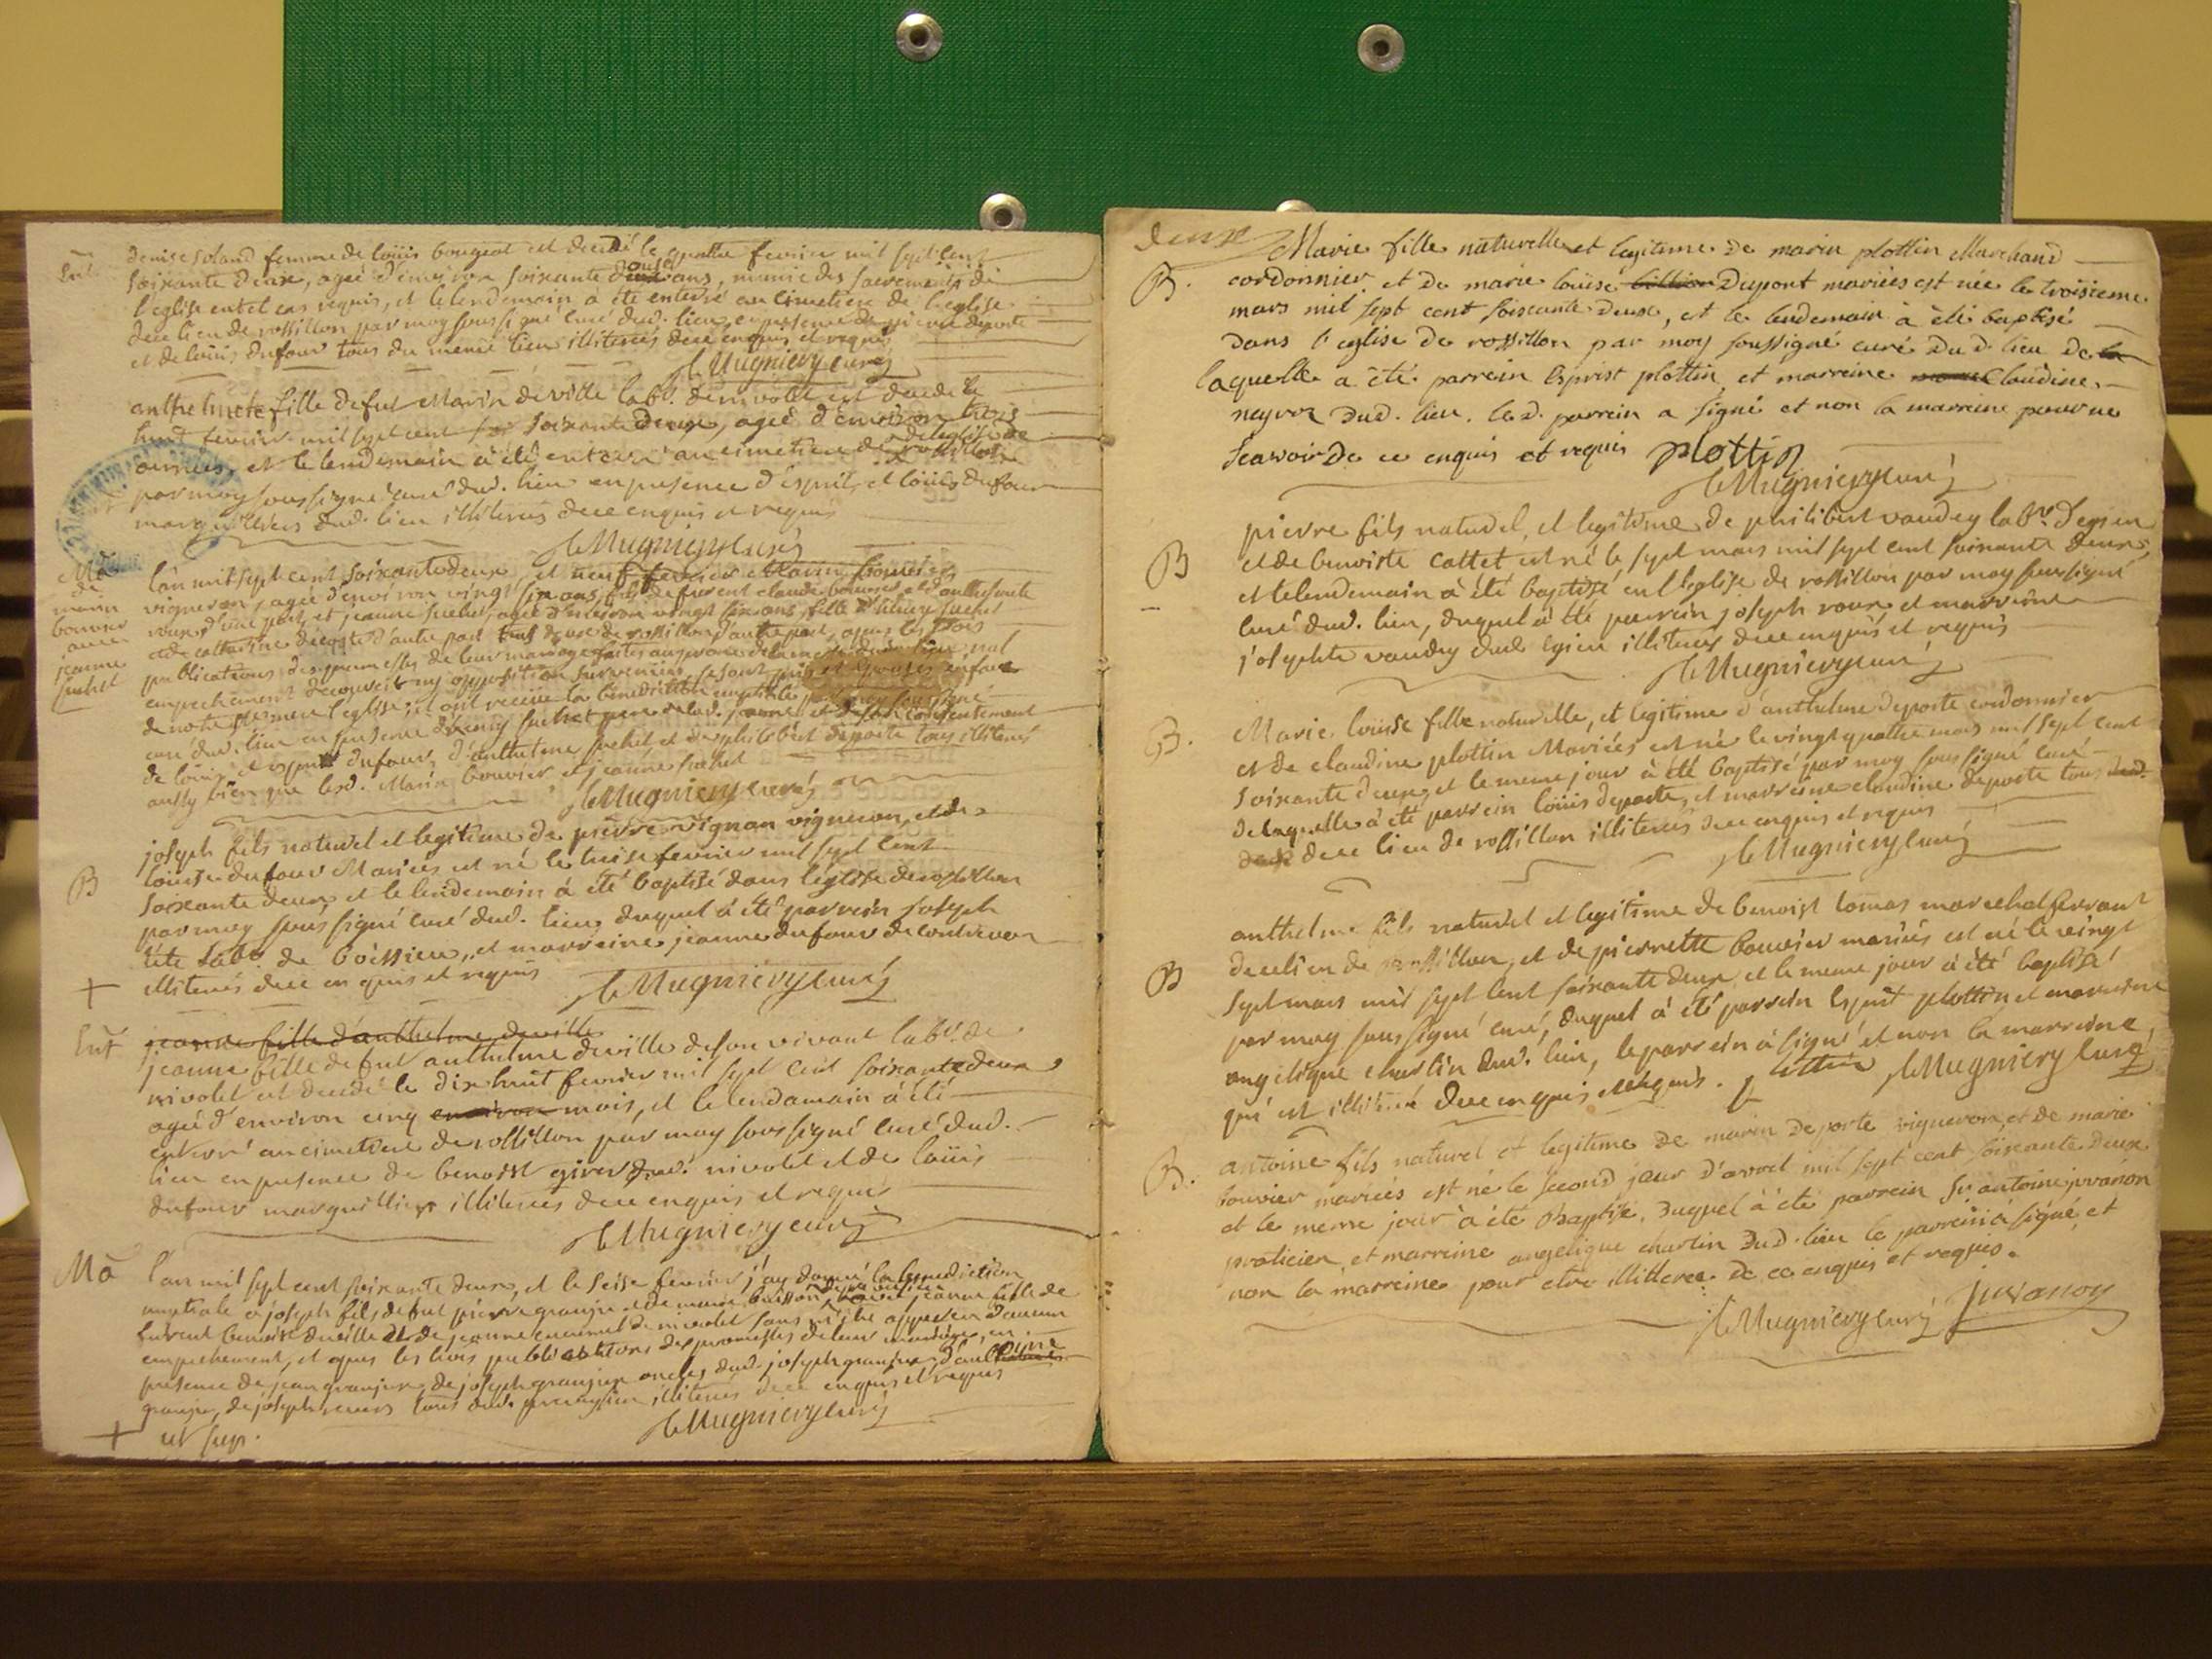 Ent. denise soland femme de loüis bougeot est decedé le quattre fevrier mil sept cent
soixante deux, agée d'environ soixante onze ans, munie des sacrements de
l'eglise en tel cas requis, et le lendemain a été enterré au cimetiere de l'eglise
dece lieu de rossillon par moy soussigné curé dud. lieu en presence de pierre deporte
et de loüis dufour tous du meme lieu illiterés dece enquis et requis
Mugniery curé
anthelmete fille de fut Marin deville labr. de nivolet est decedé le
huit fevrier mil sept cent soixante deux, agée d'environ trois
années, et le lendemain à été enterré au cimetiere de l'eglise de rossillon
par moy soussigné curé dud. lieu en presence d'esprit, et loüis dufour
marguilliers dud. lieu illiterés dece enquis et requis
Mugniery curé
Mã de marin bouvier avec jeanne suchet
l'an mil sept cent soixante deux, et neuf fevrier Marin bouvier
vigneron, agée d'environ vingt six ans, fils de furent claude bouvier et d'anthelmete
roux d'une part, et jeanne suchet, agée d'environ vingt six ans, fille d'henry suchet
et de catherine deporte d'autre part de rossillon d'autre part, apres les trois
publications des promesses de leur mariage faites au prone de la messe dud. lieu, nul
empechement decouvert ny opposition survenüe, se sont pris et epousés en face
de notre ste mere l'eglise, et ont receüe la benediction nuptiale par moy soussigné
curé dud. lieu en presence d'henry suchet pere de lad. jeanne et de son consentement
de loüis, et esprit dufour, d'anthelme suchet, et de philibert deporte tous illiterés
aussy bien que lesd. Marin bouvier, et jeanne suchet
Mugniery curé
B joseph fils naturel et legitime de pierre vignon vigneron, et de
loüise dufour Mariés est né le treise fevrier mil sept cent
soixante deux, et le lendemain à été baptisé dans l'eglise de rossillon
par moy soussigné curé dud. lieu, duquel à été parrein joseph
tête labr. de boissieu, et marreine jeanne dufour de contrevoz
illiterés dece enquis et requis Mugniery curé
Ent jeanne fille d'anthelme deville
jeanne fille de fut anthelme deville de son vivant labr. de
nivolet est decedé le dix huit fevrier mil sept cent soixante deux
agée d'environ cinq environ mois, et le lendemain à été
enterré au cimetiere de rossillon par moy soussigné curé dud.
lieu en presence de benoist girer dud. nivolet et de loüis
dufour marguillier illiterés dece enquis et requis
Mugniery curé
Mã l'an mil sept cent soixante deux, et le seise fevrier j'ay donné la benediction
nuptiale a joseph fils de fut pierre granjon et de marie buisson, jeanne fille de
furent benoist deville et de jeanne de nivolet sans m'être apperceu d'aucun
empechement, et apres les trois publications des promesses de leur mariage, en
presence de jean granjon, de joseph granjon oncles dud. joseph granjon, d'antoine
granjon, de joseph tous dud. illiterés dece enquis et requis
ut sup. Mugniery curé
deux
B. Marie fille naturelle et legitime de marin plottin Marchand
cordonnier et de marie loüise Dupont mariés est née le troisieme
mars mil sept cent soixante deux, et le lendemain à été baptisé
dans l'eglise de rossillon par moy soussigné curé dud. lieu de la
laquelle a été parrein Esprist plottin, et marreine Claudine
neyroz dud. lieu. led. parrein a signé et non la marreine pour ne
scavoir de ce enquis et requis plottin
Mugniery curé
B pierre fils naturel, et legitime de philibert vaudey labr. d'egieu
et de benoiste cattet est né le sept mars mil sept cent soixante deux,
et le lendemain à été baptisé en l'eglise de rossillon par moy soussigné
curé dud. lieu, duquel à été parrein joseph roux et marreine
josephte vaudey dud. egieu illiterés dece enquis et requis
Mugniery curé
B. Marie loüise fille naturelle, et legitime d'anthelme deporte cordonnier
et de claudine plottin Mariés est né le vingt quattre mars mil sept cent
soixante deux, et le meme jour à été baptisé par moy soussigné curé
de laquelle à été parrein loüis deporte, et marreine claudine deporte tous dud.
dece lieu de rossillon illiterés dece enquis et requis
Mugniery curé
B anthelme fils naturel et legitime de benoist tomas marechal ferrant
dece lieu de rossillon, et de pierrette bouvier mariés est né le vingt
sept mars mil sept cent soixante deux, et le meme jour à été baptisé
par moy soussigné curé, duquel à été parrein Esprit plottin et marreine
angelique charlin dud. lieu, le parrein à signé et non la marreine,
qui est illiteré dece enquis et requis. plottin Mugniery curé
B. antoine fils naturel et legitime de marin deporte vigneron, et de marie
bouvier mariés est né le second jour d'avril mil sept cent soixante deux
et le meme jour à été Baptisé, duquel à été parrein Sr. antoine juvanon
praticien, et marreine angelique charlin dud. lieu le parrein a signé, et
non la marreine pour etre illitteree de ce enquis et requis.
Mugniery curé Juvanon